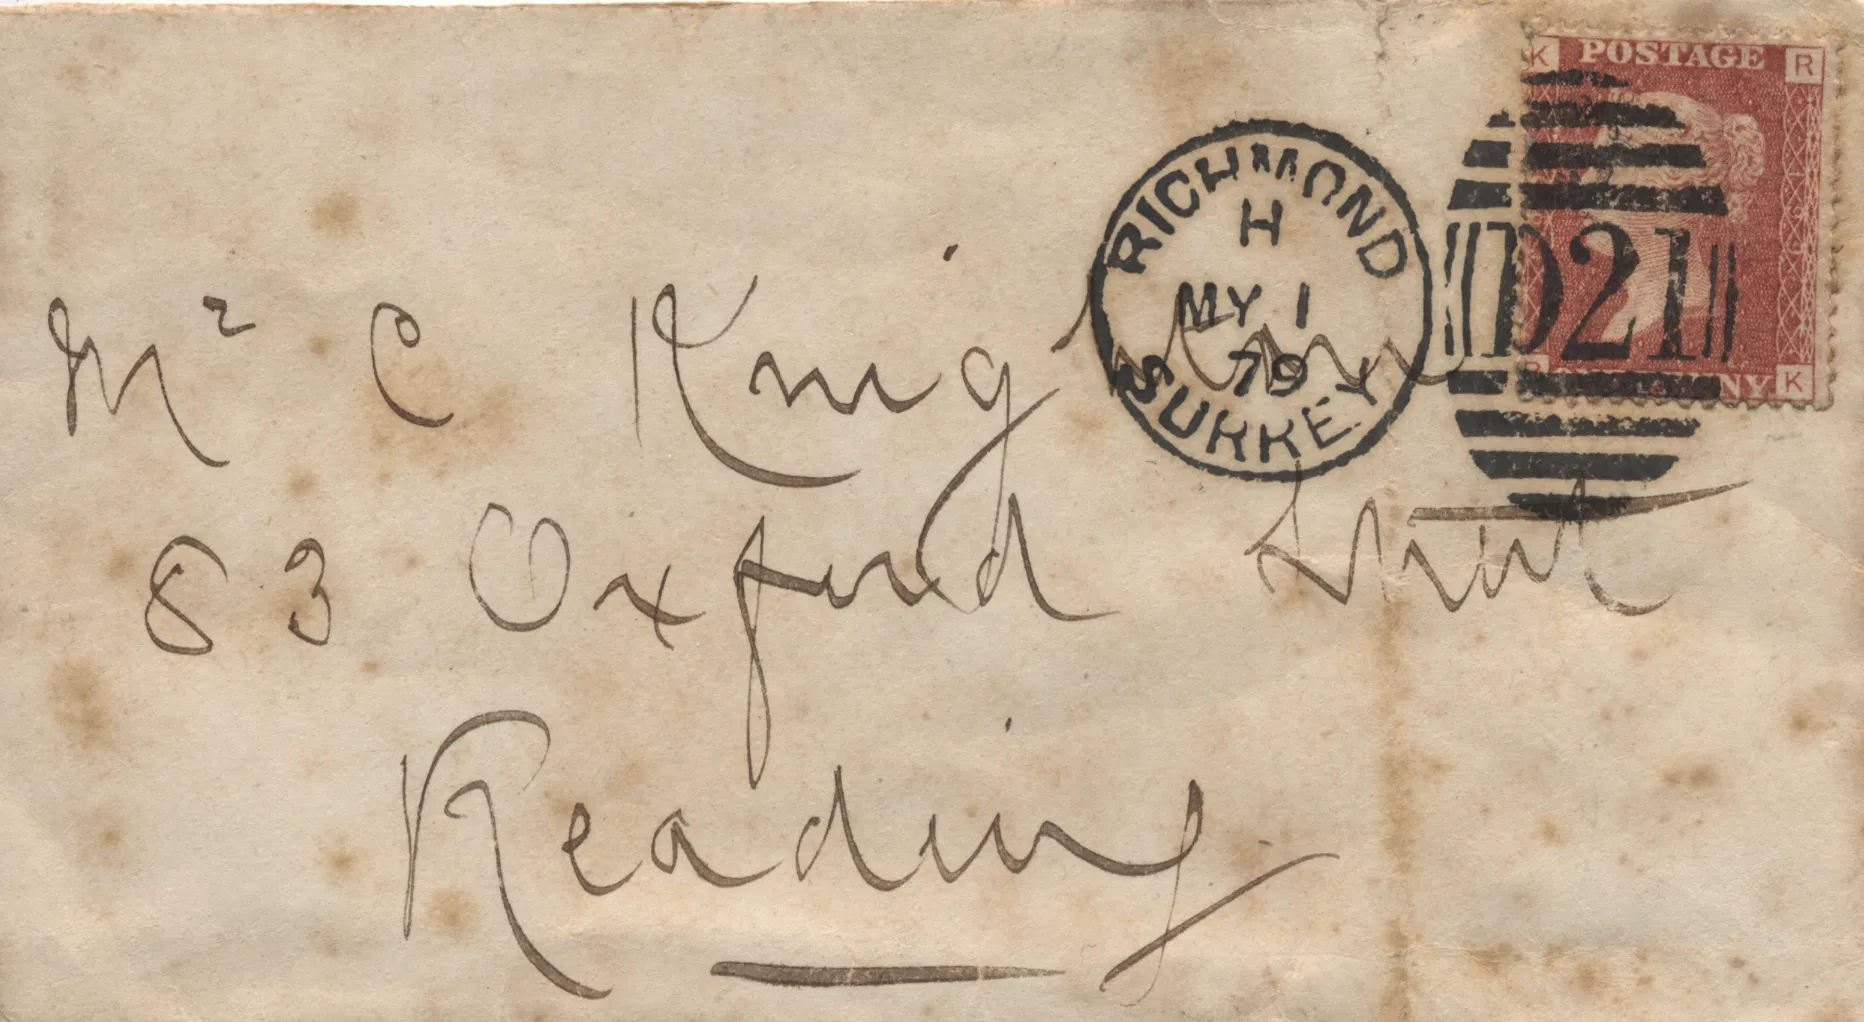 K POSTAGE R
RICHMOND
H
MY 1
79
SURREY
D21
R ONE PENNY K
Mr C
83 Oxford Street
Reading